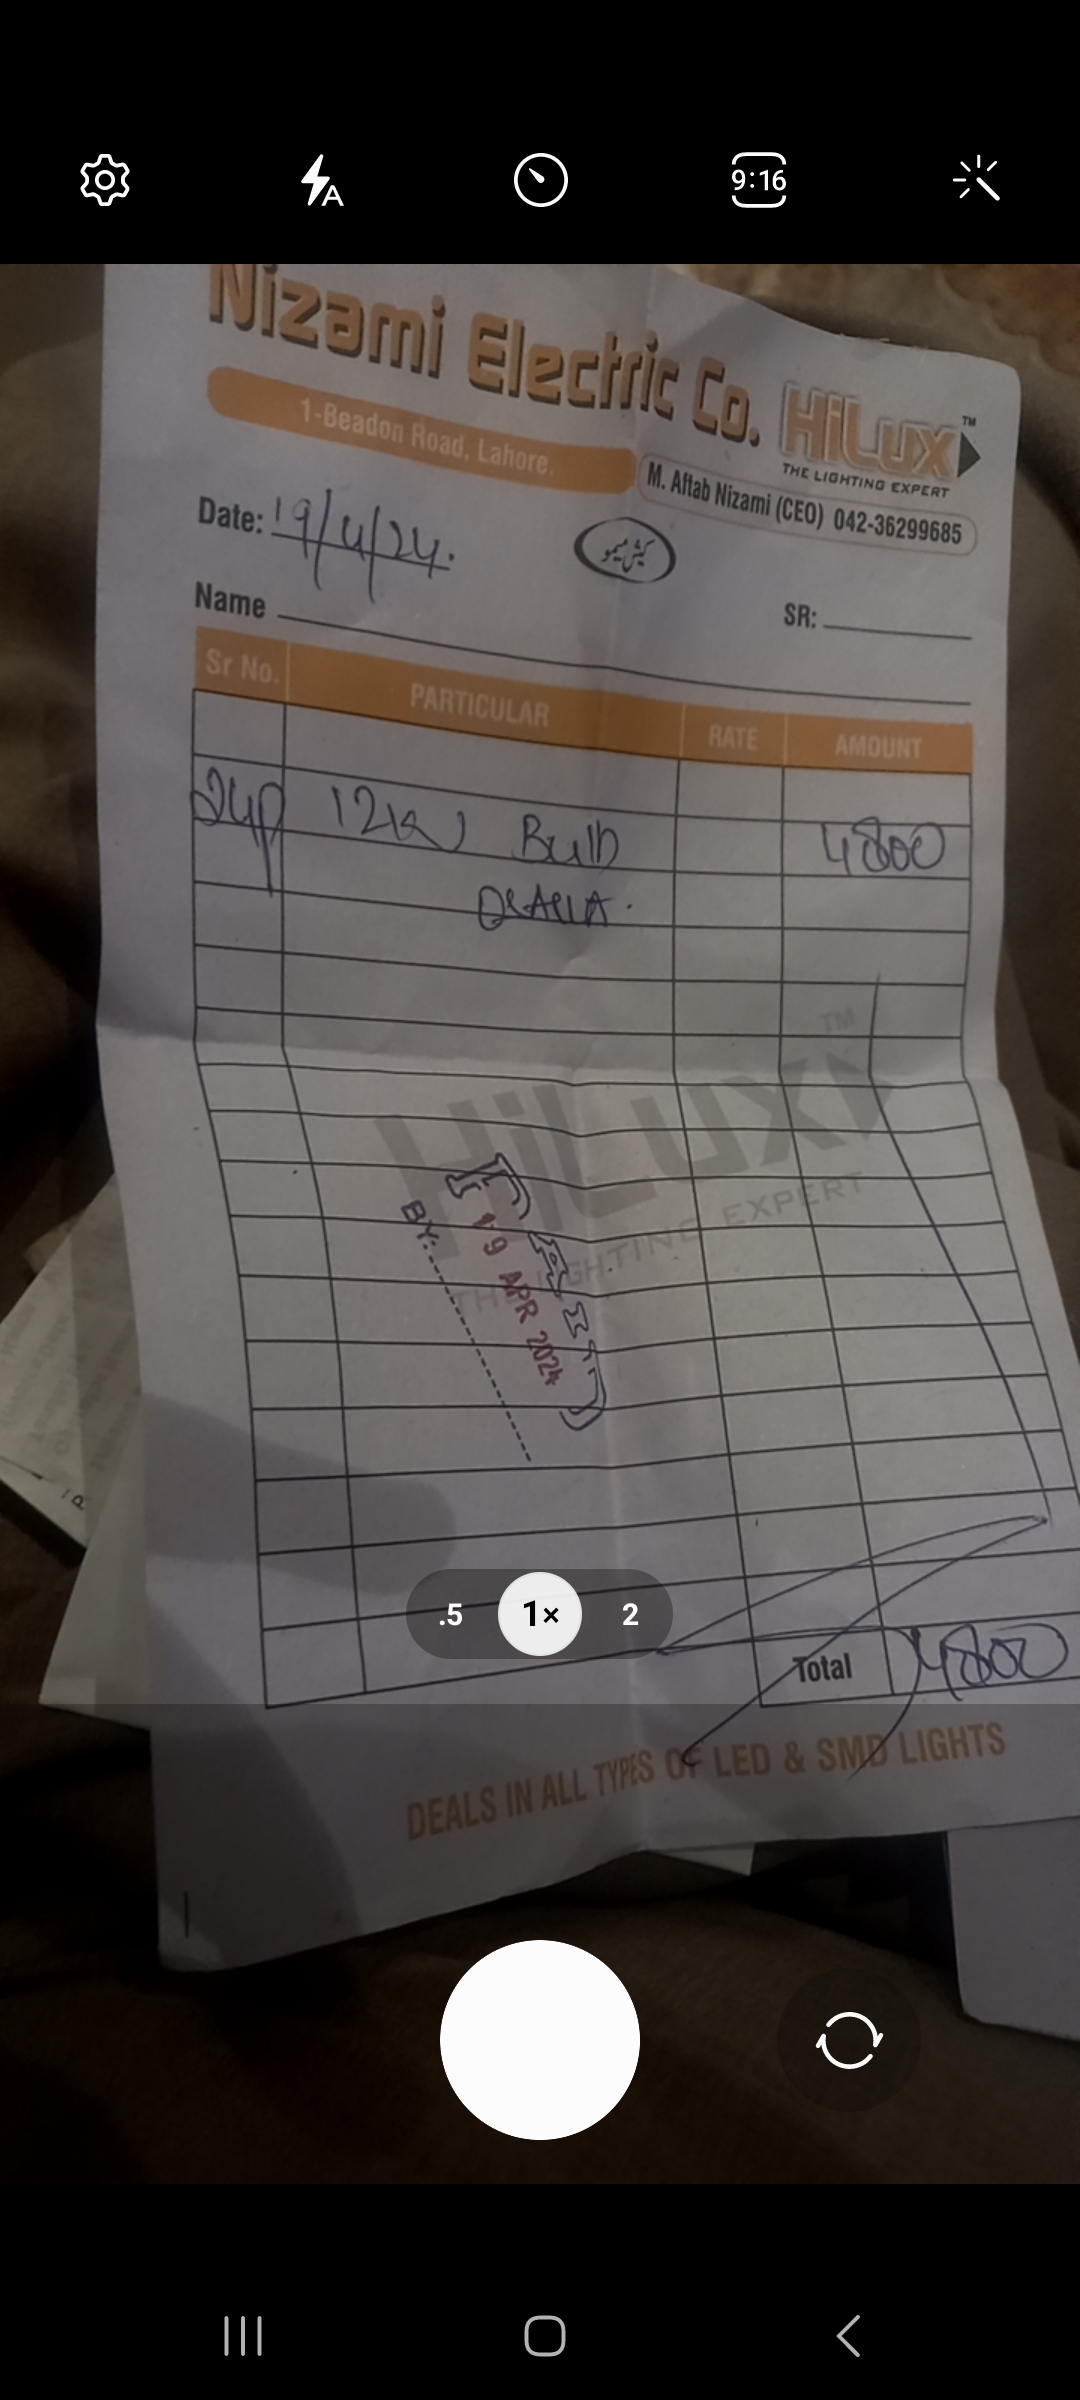 9:16
Nizami Electric Co.
HiLux TM
THE LIGHTING EXPERT
1-Beadon Road, Lahore.
M. Aftab Nizami (CEO) 042-36299685
Date: 19/4/24.
کیش میمو
Name
SR:
Sr No. PARTICULAR RATE AMOUNT
24p 12W Bulb 4800
HiLux TM
THE LIGHTING EXPERT
PAID
19 APR 2024
BY:
.5 1× 2
Total 4800
DEALS IN ALL TYPES OF LED & SMD LIGHTS